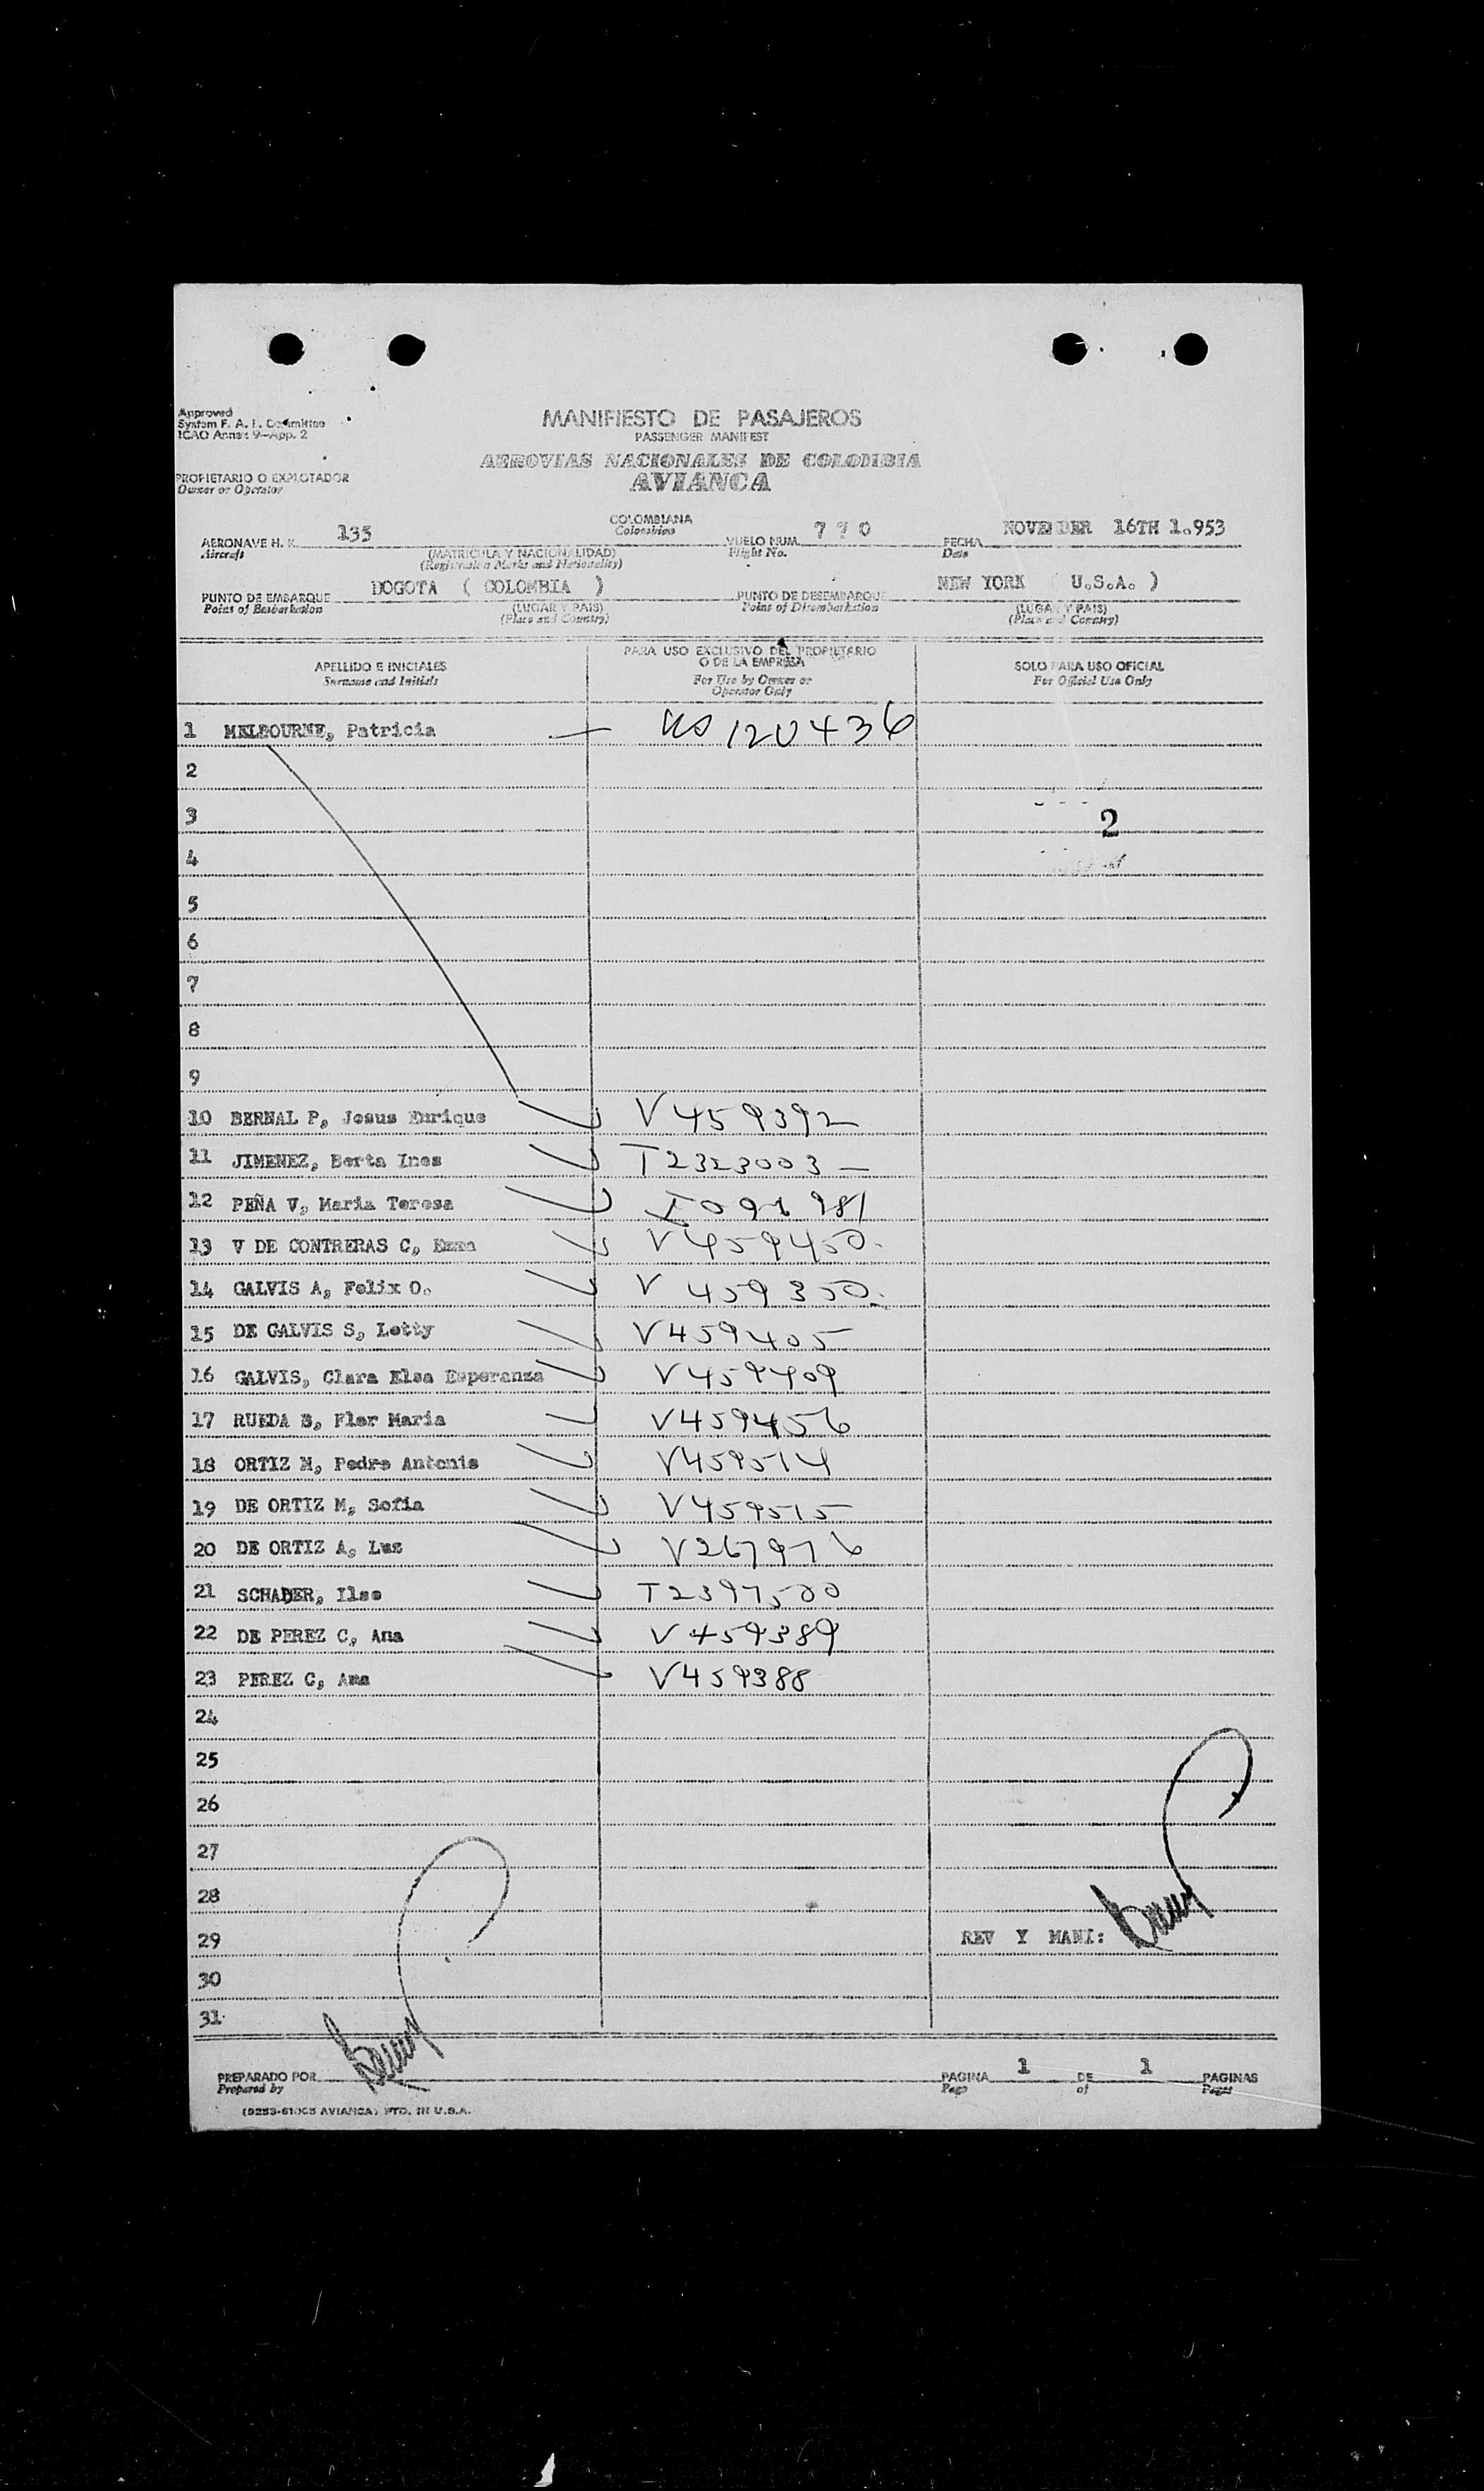 Approved
System F. A. L. Committee
ICAO Annex 9-App. 2
MANIFIESTO DE PASAJEROS
PASSENGER MANIFEST
AEROVIAS NACIONALES DE COLOMBIA
AVIANCA
PROPIETARIO O EXPLOTADOR
Owner or Operator
AERONAVE H. K. 133 COLOMBIANA VUELO NUM. 770 FECHA NOVEMBER 16TH 1.953
Aircraft Colombian Flight No. Date
(MATRICULA Y NACIONALIDAD)
(Registration Marks and Nationality)
PUNTO DE EMBARQUE BOGOTA ( COLOMBIA ) PUNTO DE DESEMBARQUE NEW YORK ( U.S.A. )
Point of Embarkation Point of Disembarkation
(LUGAR Y PAIS) (LUGAR Y PAIS)
(Place and Country) (Place and Country)
APELLIDO E INICIALES
Surname and Initials
PARA USO EXCLUSIVO DEL PROPIETARIO
O DE LA EMPRESA
For Use by Owner or
Operator Only
SOLO PARA USO OFICIAL
For Official Use Only
1 MELBOURNE, Patricia 120436
2
3 2
4
5
6
7
8
9
10 BERNAL P, Jesus Enrique V459392
11 JIMENEZ, Berta Ines T2323003 -
12 PEÑA V, Maria Teresa
13 V DE CONTRERAS C, Emma V459450.
14 GALVIS A, Felix O. V 459350.
15 DE GALVIS S, Letty V459405
16 GALVIS, Clara Elsa Esperanza V459409
17 RUEDA B, Flor Maria V459456
18 ORTIZ M, Pedro Antonio V459514
19 DE ORTIZ M, Sofia V459515
20 DE ORTIZ A, Luz V267976
21 SCHADER, Ilse T2397500
22 DE PEREZ C, Ana V459389
23 PEREZ C, Ana V459388
24
25
26
27
28
29 REV Y MANI:
30
31
PREPARADO POR PAGINA 1 DE 1 PAGINAS
Prepared by Page of Pages
AVIANCA) PTD. IN U.S.A.